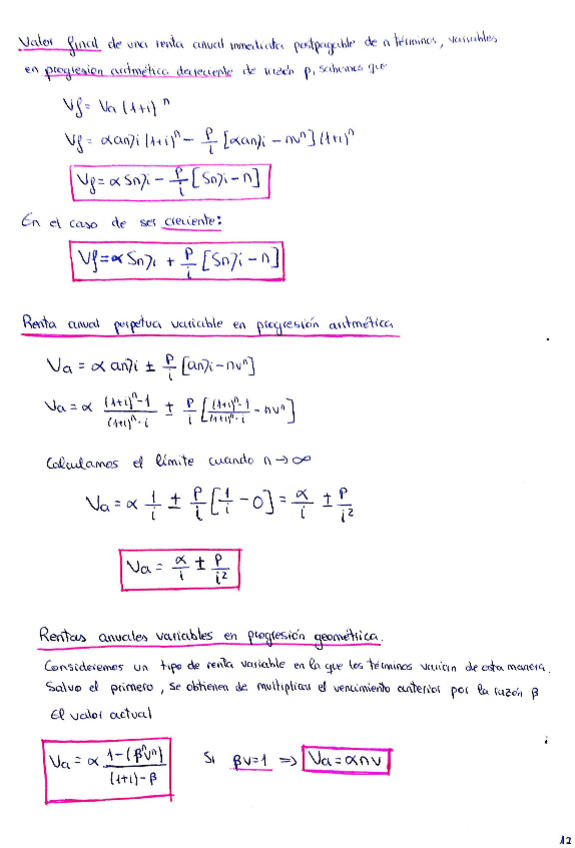 Valor final de una renta anual inmediata postpagable de n términos, variables
en progresion aritmética decreciente de razón p, sabemos que
Vf = Va (1+i)^n
Vf = α an⌉i (1+i)^n − p/i [α an⌉i − nv^n] (1+i)^n
Vf = α Sn⌉i − p/i [Sn⌉i − n]
En el caso de ser creciente:
Vf = α Sn⌉i + p/i [Sn⌉i − n]
Renta anual perpetua variable en progresión aritmética
Va = α an⌉i ± p/i [an⌉i − nv^n]
Va = α ((1+i)^n − 1)/((1+i)^n · i) ± p/i [((1+i)^n − 1)/((1+i)^n · i) − nv^n]
Calculamos el límite cuando n → ∞
Va = α 1/i ± p/i [1/i − 0] = α/i ± p/i²
Va = α/i ± p/i²
Rentas anuales variables en progresión geométrica.
Consideremos un tipo de renta variable en la que los términos varian de esta manera.
Salvo el primero, se obtienen de multiplicar el vencimiento anterior por la razón β
El valor actual
Va = α (1 − (β^n v^n))/((1+i) − β) Si βv = 1 => Va = α n v
12